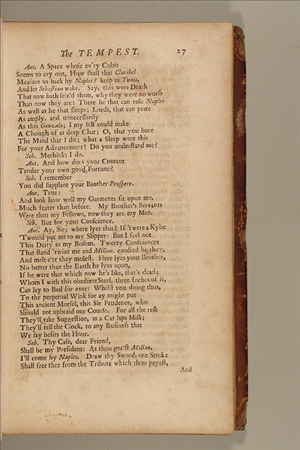 The TEMPEST. 27
Ant. A Space whose ev'ry Cubit
Seems to cry out, How shall that Claribel
Measure us back by Naples? keep in Tunis,
And let Sebastian wake. Say, this were Death
That now hath seiz'd them, why they were no worse
Than now they are: There be that can rule Naples
As well as he that sleeps; Lords, that can prate
As amply, and unnecessarily
As this Gonzalo; I my self could make
A Chough of as deep Chat; O, that you bore
The Mind that I do; what a Sleep were this
For your Advancement? Do you understand me?
Seb. Methinks I do.
Ant. And how does your Content
Tender your own good Fortune?
Seb. I remember
You did supplant your Brother Prospero.
Ant. True:
And look how well my Garments sit upon me,
Much feater than before. My Brother's Servants
Were then my Fellows, now they are my Men.
Seb. But for your Conscience.
Ant. Ay, Sir; where lyes that? If 'twere a Kybe
'Twould put me to my Slipper: But I feel not
This Deity in my Bosom. Twenty Consciences
That stand 'twixt me and Millan, candied be they,
And melt e'er they molest. Here lyes your Brother,
No better than the Earth he lyes upon,
If he were that which now he's like, that's dead;
Whom I with this obedient Steel, three Inches of it,
Can lay to Bed for ever: Whilst you doing thus,
To the perpetual Wink for ay might put
This ancient Morsel, this Sir Prudence, who
Should not upbraid our Course. For all the rest
They'll take Suggestion, as a Cat laps Milk;
They'll tell the Clock, to any Business that
We say befits the Hour.
Seb. Thy Case, dear Friend,
Shall be my President: As thou got'st Millan,
I'll come by Naples. Draw thy Sword, one Stroke
Shall free thee from the Tribute which thou payest,
And